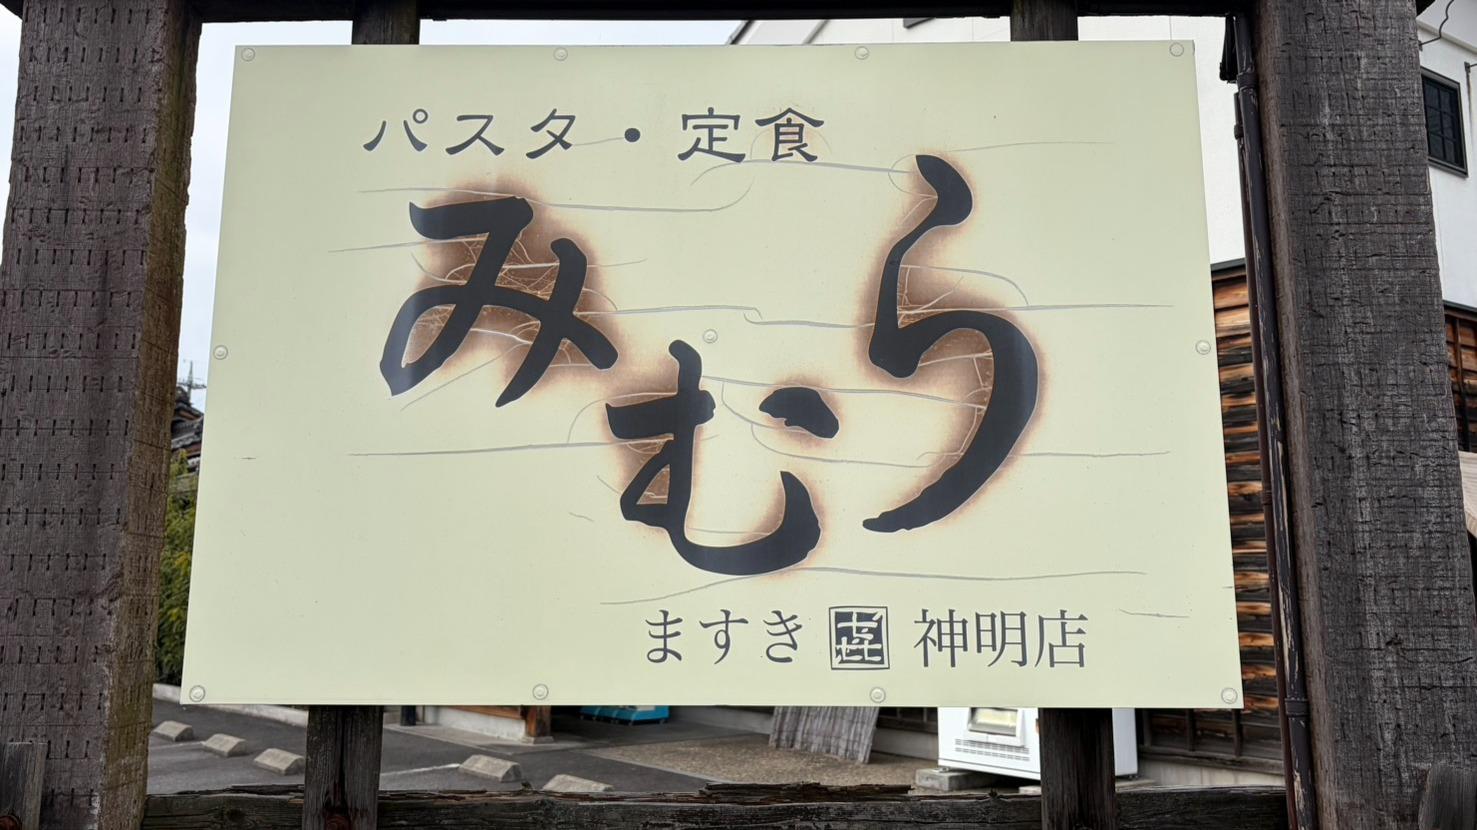 パスタ・定食
みむら
ますき 神明店